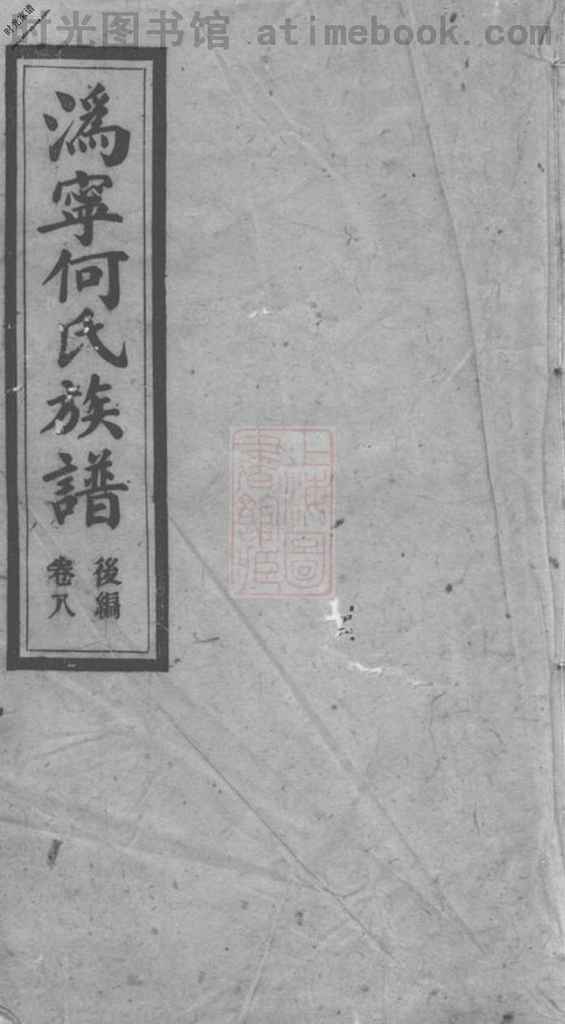 时光图书馆 atimebook.com
时光家谱
溈寧何氏族譜
後編
卷八
上海圖書館藏